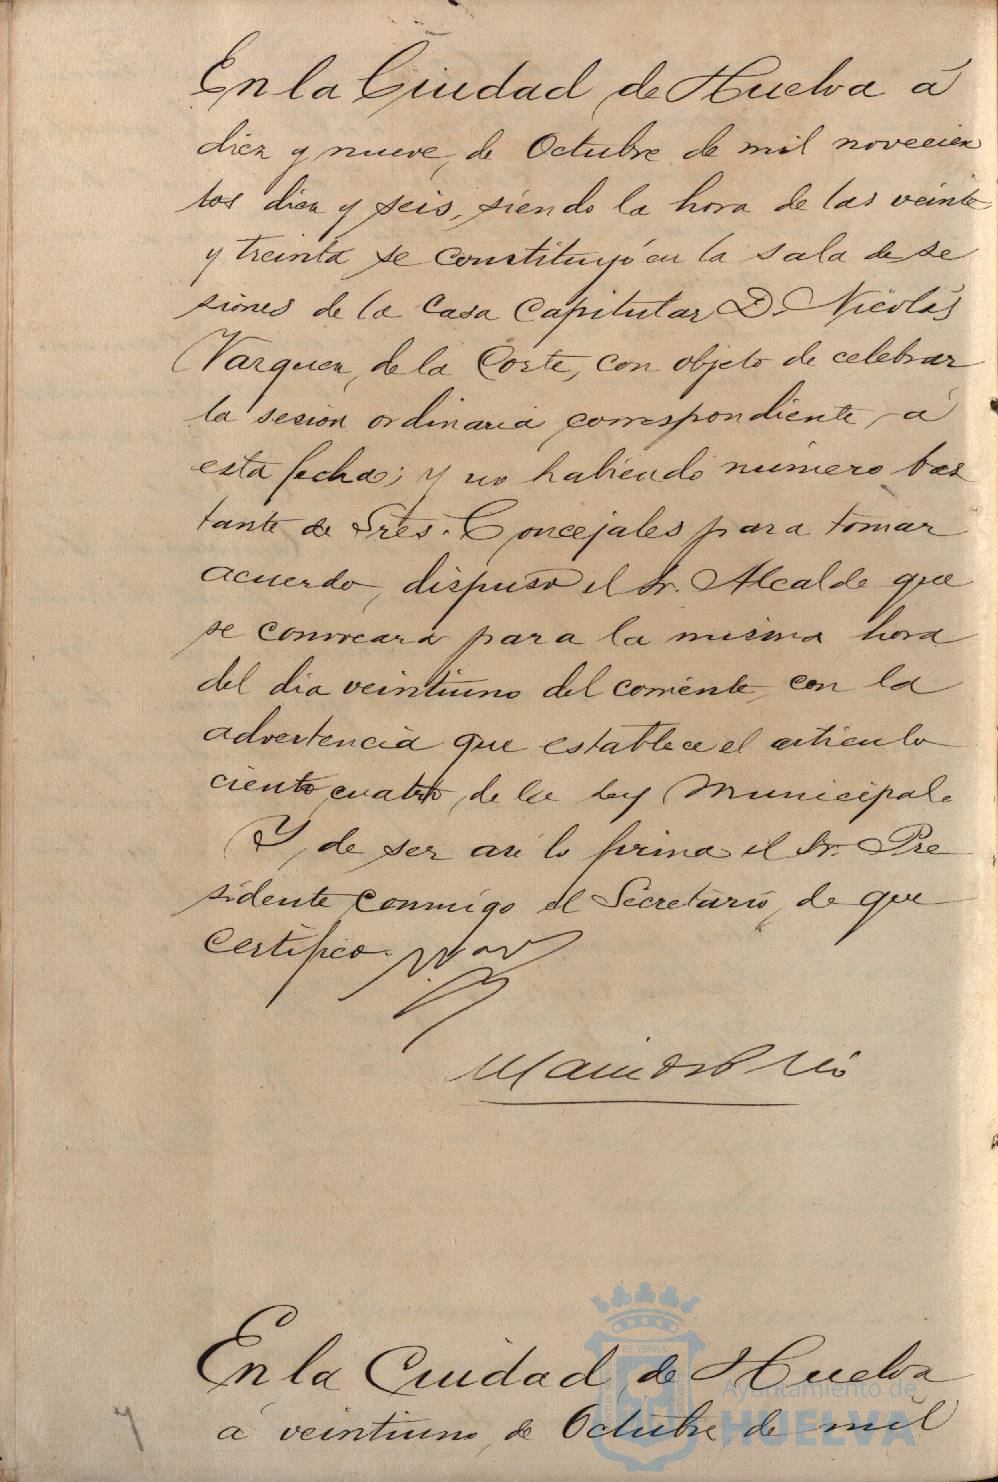 En la Ciudad de Huelva á
diez y nueve, de Octubre de mil novecien
tos diez y seis, siendo la hora de las veinte
y treinta se constituyó en la sala de se
siones de la Casa Capitular D. Nicolás
Vazquez, de la Corte, con objeto de celebrar
la sesion ordinaria correspondiente á
esta fecha; y no habiendo número bas
tante de Sres. Concejales para tomar
acuerdo, dispuso el Sr. Alcalde que
se convocara para la misma hora
del dia veintiuno del corriente, con la
advertencia que establece el articulo
ciento cuatro, de la Ley Municipal.
Y, de ser asi lo firma el Sr. Pre
sidente conmigo el Secretario, de que
certifico.
En la Ciudad de Huelva
á veintiuno, de Octubre de mil
Ayuntamiento de
HUELVA